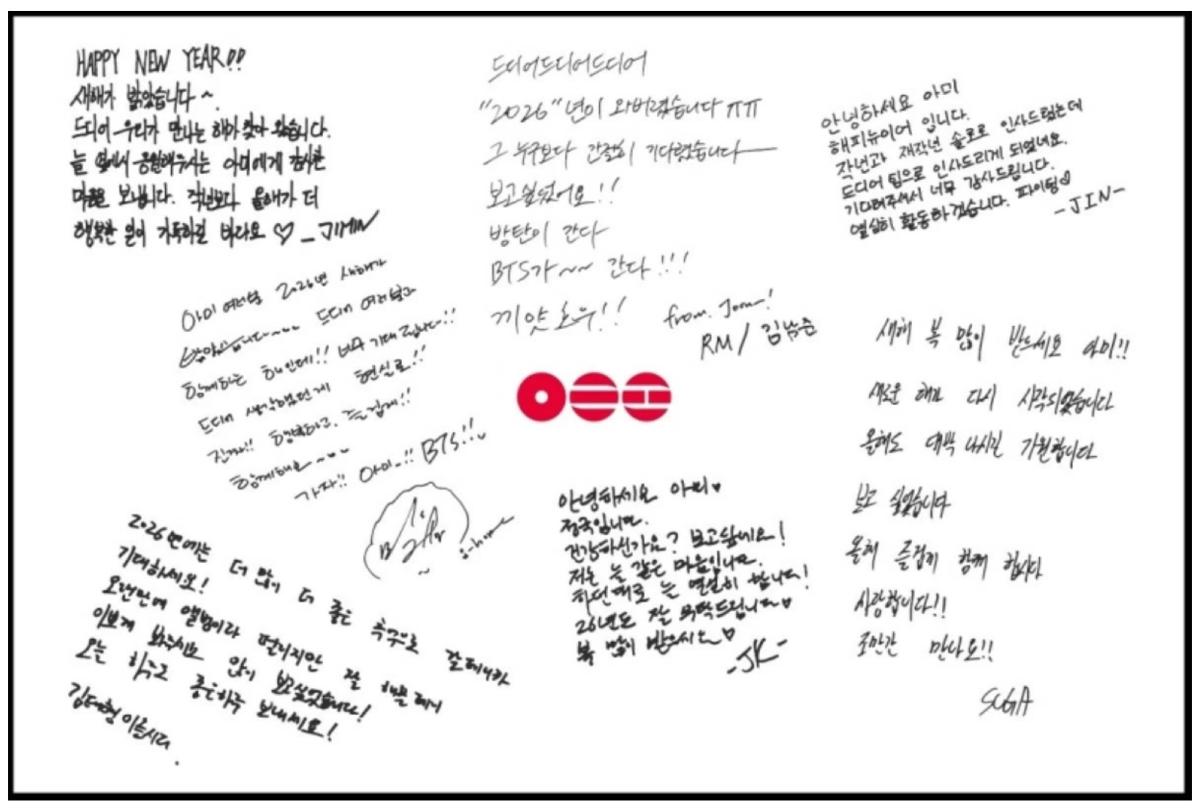 HAPPY NEW YEAR!!
새해가 밝았습니다~.
드디어 우리가 만나는 해가 찾아 왔습니다.
늘 옆에서 응원해주시는 아미에게 감사한
마음을 보냅니다. 작년보다 올해가 더
행복한 일이 가득하길 바라요 ♡ - JIMIN
드디어드디어드디어
"2026"년이 와버렸습니다 ㅠㅠ
그 누구보다 간절히 기다렸습니다
보고싶었어요!!
방탄이 간다
BTS가~~ 간다!!!
끼얏호우!!
from. Joon!
RM / 김남준
안녕하세요 아미
해피뉴이어 입니다.
작년과 재작년 솔로로 인사드렸는데
드디어 팀으로 인사드리게 되었네요.
기다려주셔서 너무 감사드립니다.
열심히 활동하겠습니다. 파이팅♡
-JIN-
아미 여러분 2026년 새해가
밝았습니다~~~ 드디어 여러분과
함께하는 해인데!! 너무 기대됩니다!!
드디어 생각했던게 현실로!!
진짜!! 행복하고, 즐겁게!!
함께해요~~~
가자!! 아미..!! BTS!!
j-hope
새해 복 많이 받으세요 아미!!
새로운 해가 다시 시작되었습니다
올해도 대박 나시길 기원합니다
보고 싶었습니다
올해 즐겁게 함께 합시다
사랑합니다!!
조만간 만나요!!
SUGA
안녕하세요 아미♥
정국입니다.
건강하신가요? 보고싶네요!
저는 늘 같은 마음입니다.
하던대로 늘 열심히 합니다!
26년도 잘 부탁드립니다♥
복 많이 받으시오♡
-JK-
2026년에는 더 많이 더 좋은 추억으로 갈테니까
기대하세요!
오랜만에 앨범이라 떨리지만 잘 해볼테니
이쁘게 봐주시요 많이 보고싶었습니다!
오늘 하루도 좋은하루 보내세요!
김태형 이올시다.